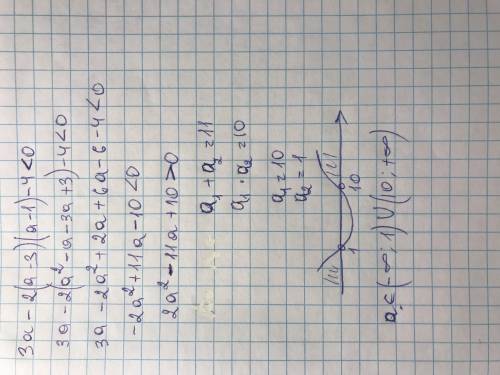 3a - 2(a-3)(a-1) - 4 < 0
3a - 2(a² - a - 3a + 3) - 4 < 0
3a - 2a² + 2a + 6a - 6 - 4 < 0
-2a² + 11a - 10 < 0
2a² - 11a + 10 > 0
a₁ + a₂ = 11
a₁ · a₂ = 10
a₁ = 10
a₂ = 1
1 10
a ∈ (-∞; 1) ∪ (10; +∞)